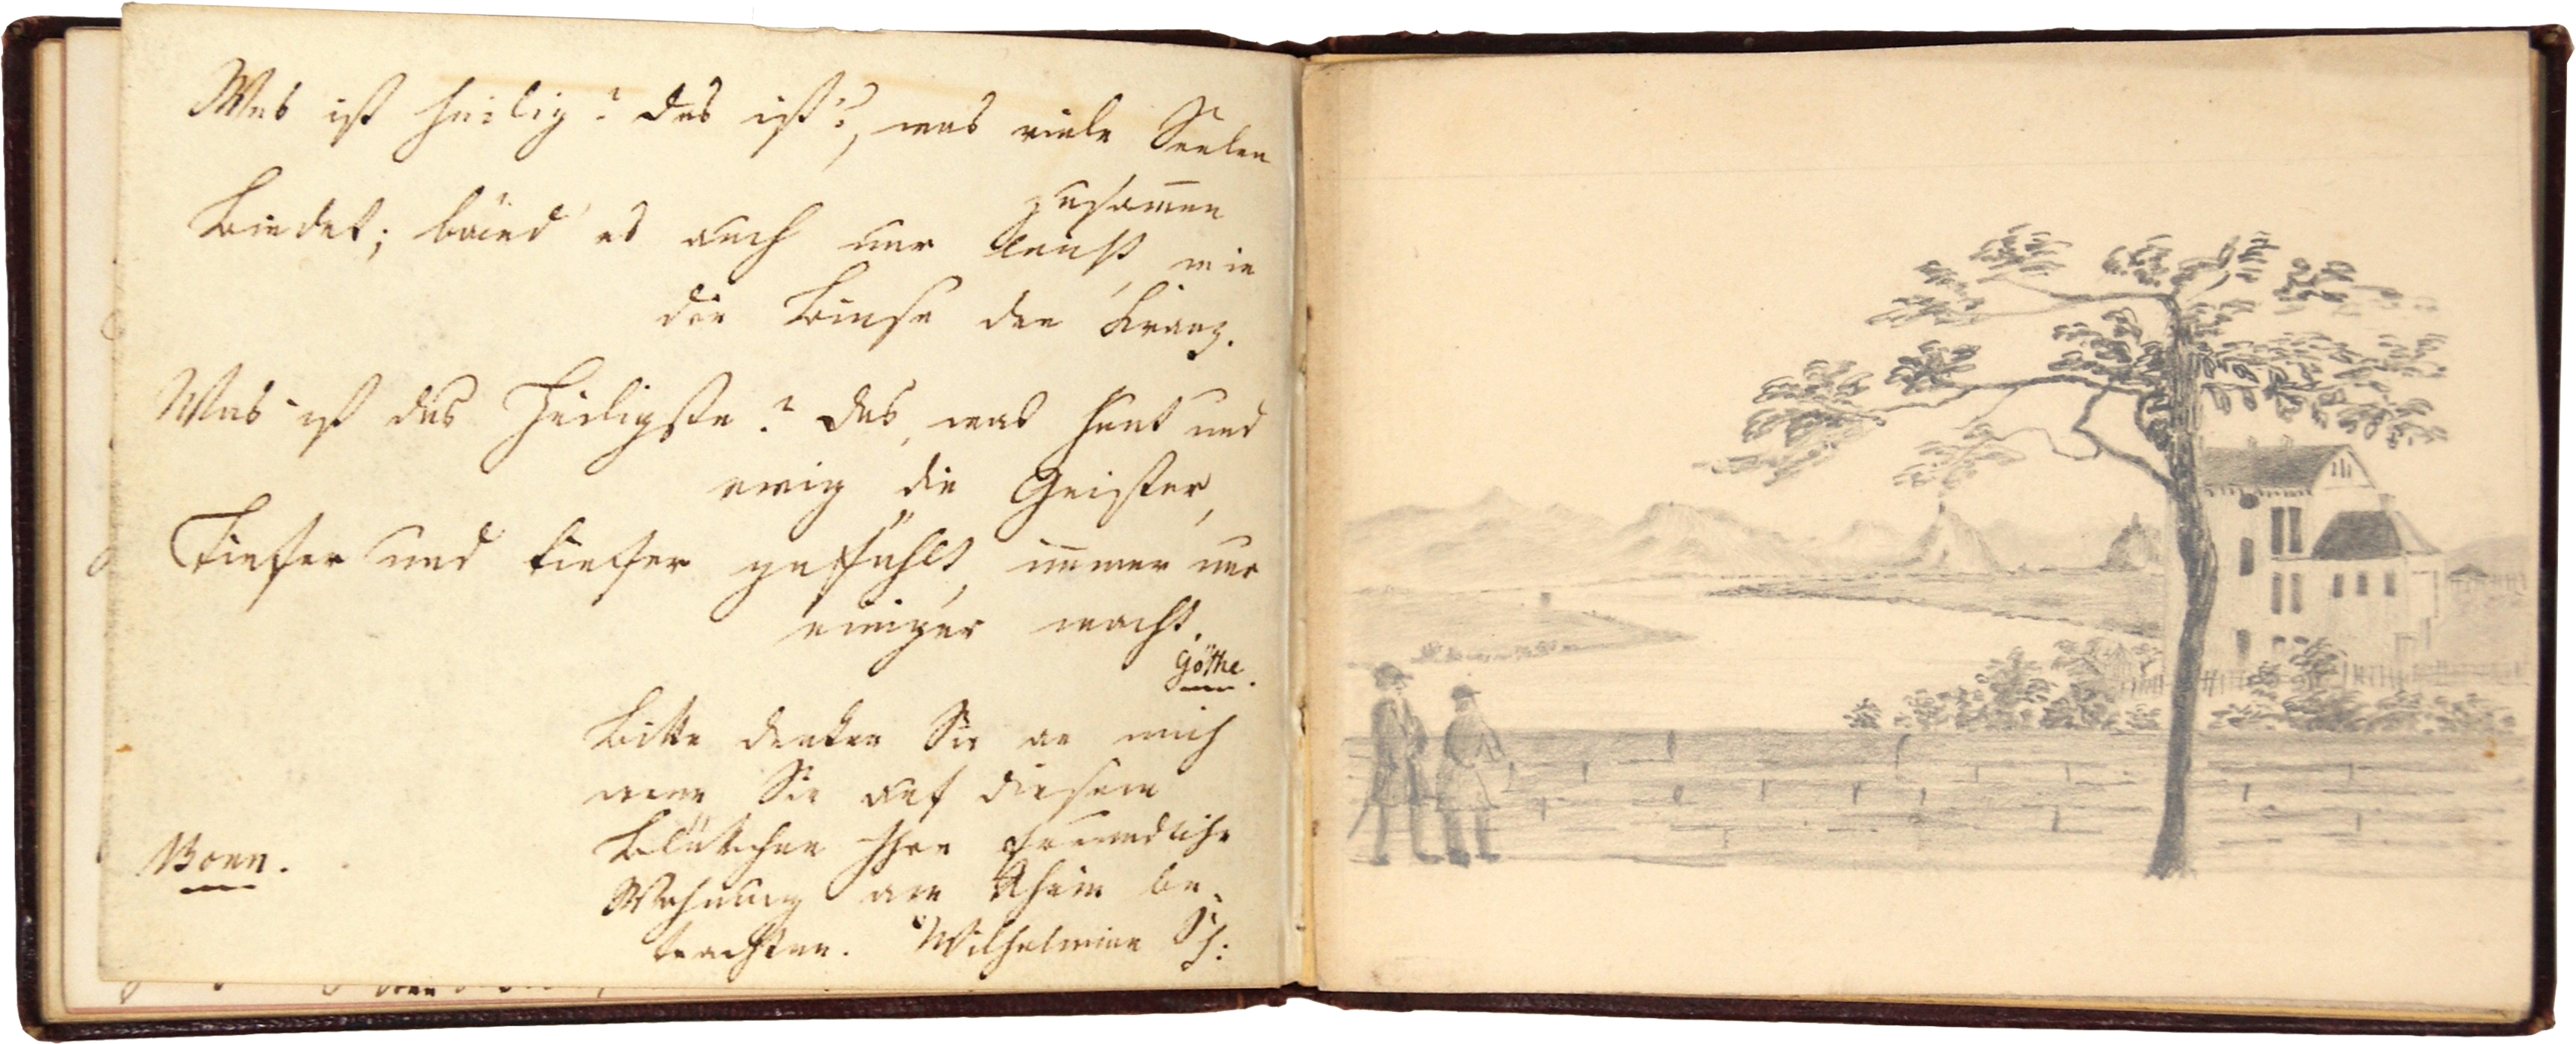 Was ist heilig? das ist's, was viele Seelen
zusam̅en
bindet; bänd' es auch nur leicht, wie
die Binse den Kranz.
Was ist das Heiligste? das, was heut und
ewig die Geister,
Tiefer und tiefer gefühlt, im̅mer nur
einiger macht.
Göthe.
Bitte denken Sie an mich
wenn Sie auf diesem
Blättchen Ihre freundliche
Wohnung am Rhein be-
trachten. Wilhelmine Sch:
Bonn.